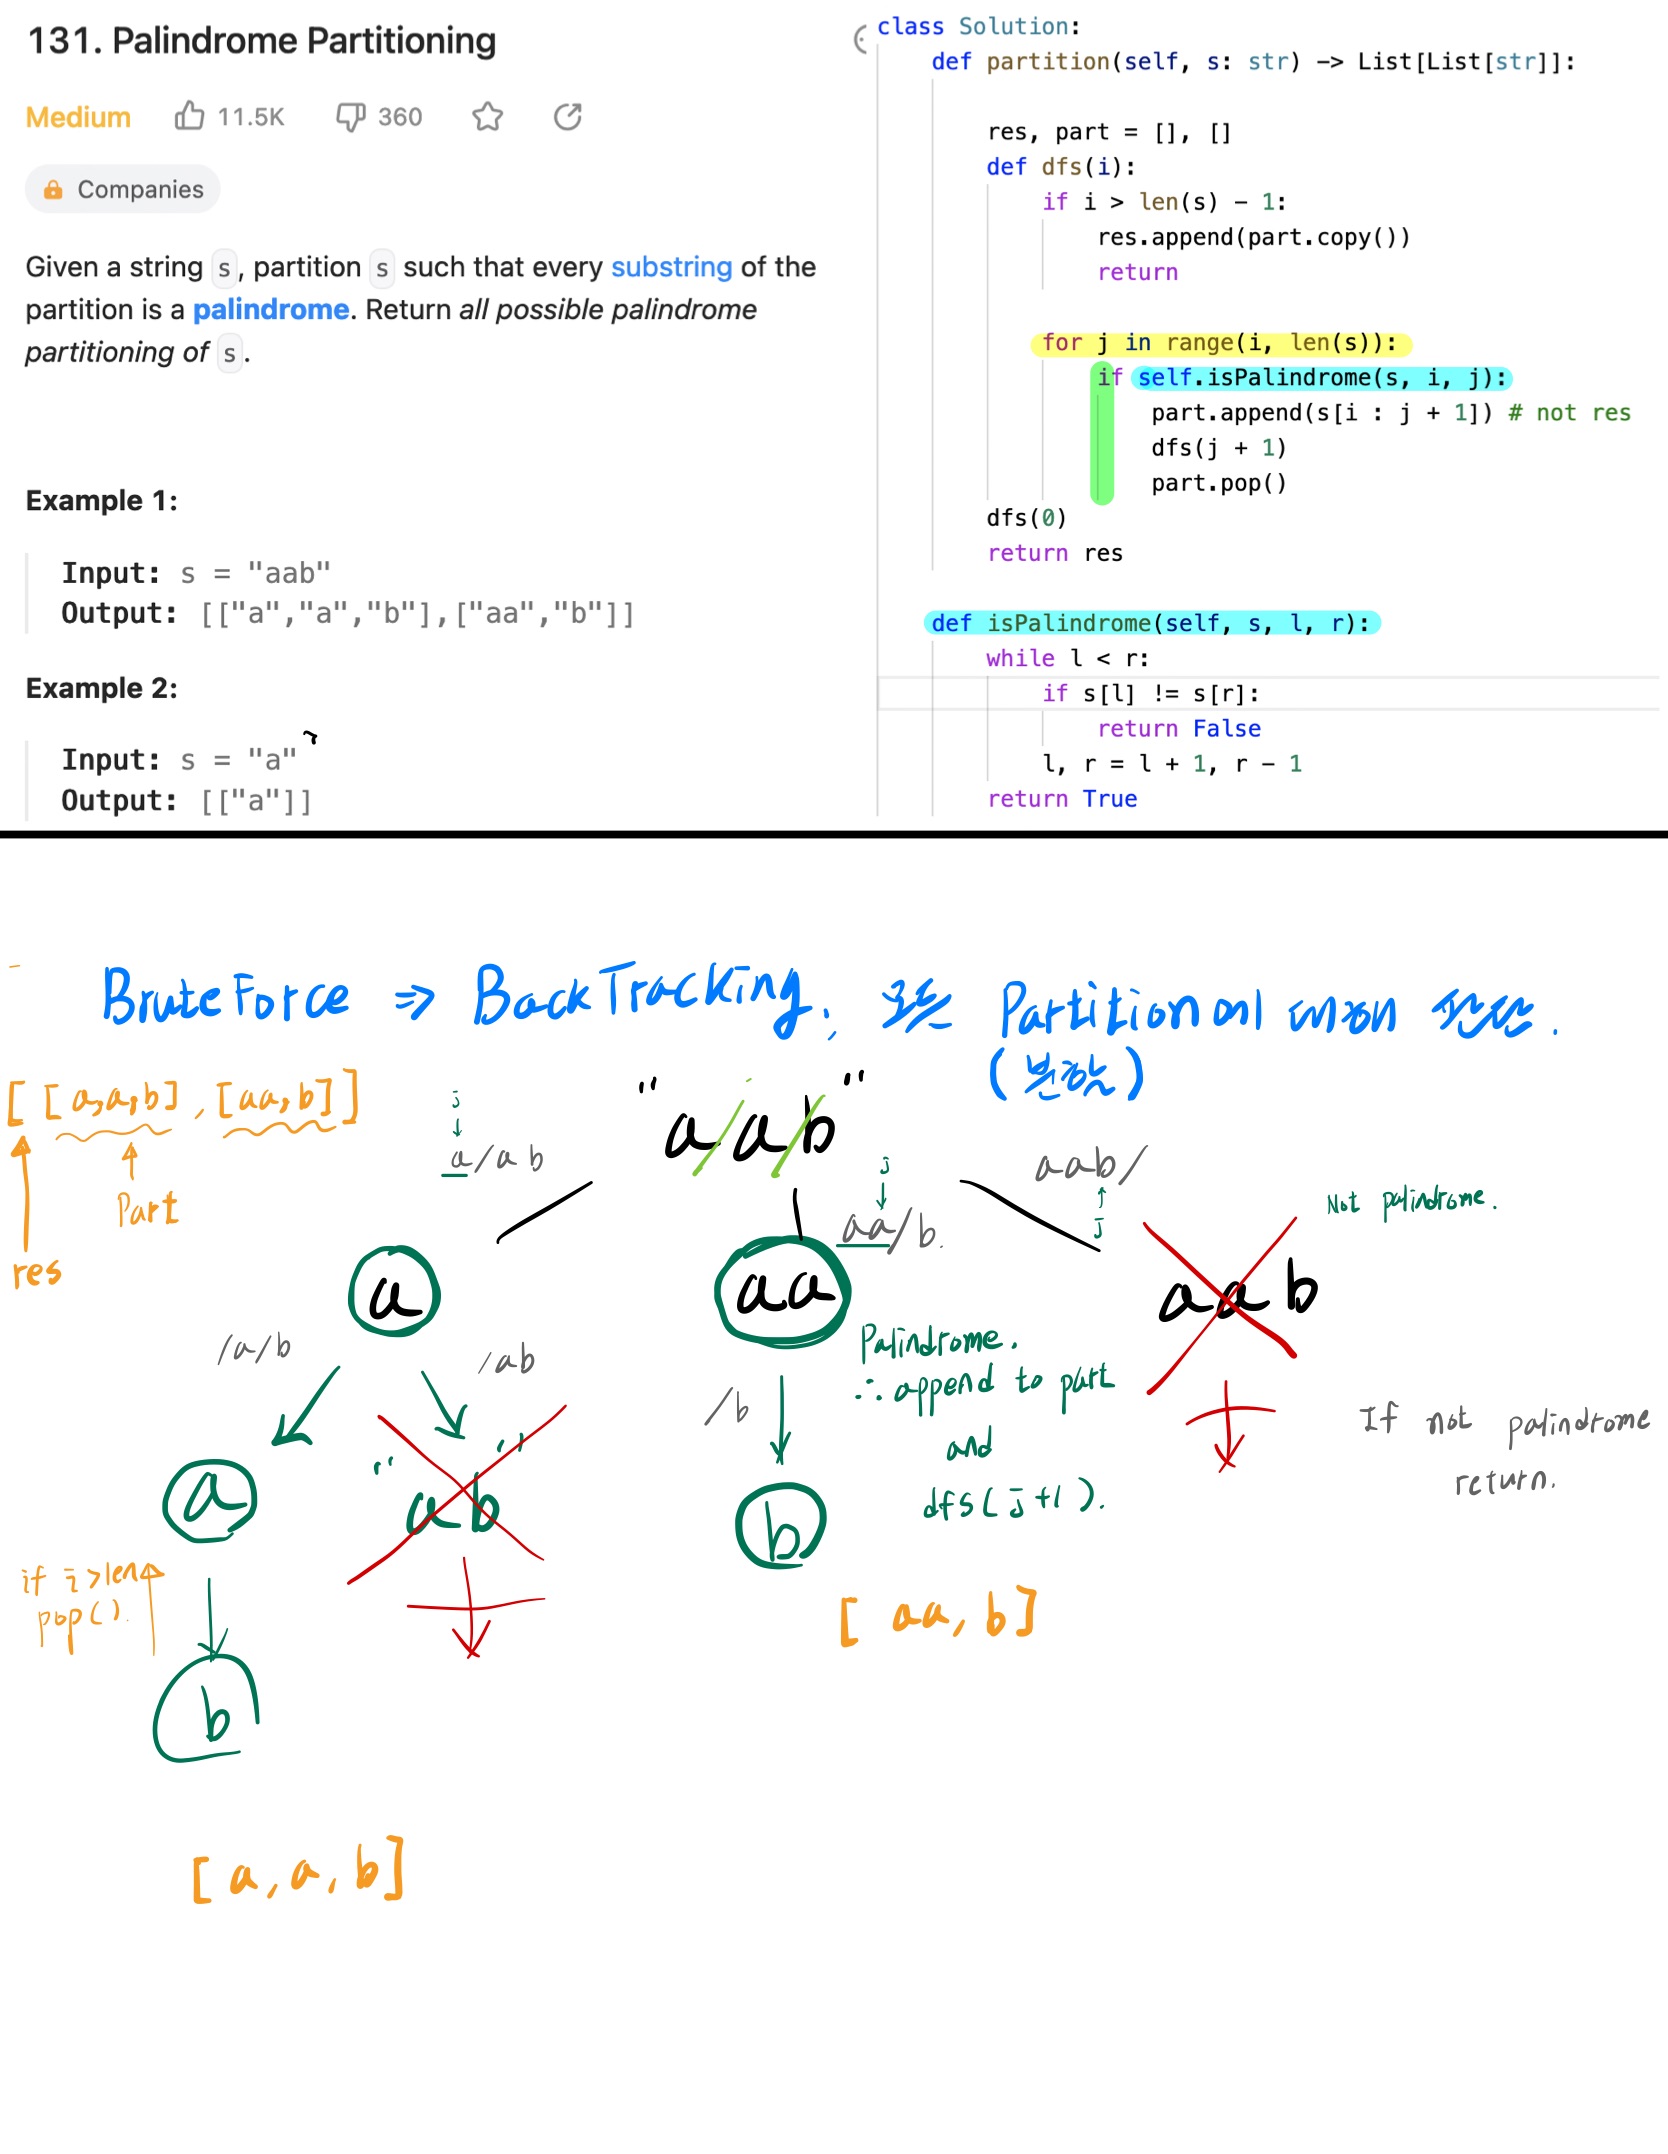 131. Palindrome Partitioning
Medium 11.5K 360
Companies
Given a string s, partition s such that every substring of the
partition is a palindrome. Return all possible palindrome
partitioning of s.
Example 1:
Input: s = "aab"
Output: [["a","a","b"],["aa","b"]]
Example 2:
Input: s = "a"
Output: [["a"]]
class Solution:
def partition(self, s: str) -> List[List[str]]:
res, part = [], []
def dfs(i):
if i > len(s) - 1:
res.append(part.copy())
return
for j in range(i, len(s)):
if self.isPalindrome(s, i, j):
part.append(s[i : j + 1]) # not res
dfs(j + 1)
part.pop()
dfs(0)
return res
def isPalindrome(self, s, l, r):
while l < r:
if s[l] != s[r]:
return False
l, r = l + 1, r - 1
return True
BruteForce ⇒ BackTracking, 모든 Partition에 대하여
(분할)
[ [a,a,b] , [aa,b] ]
Part
res
"a/a/b"
j
↓
a/ab
j
↓
aa/b.
aab/
↑
j
Not palindrome.
a
aa
aab
/a/b
/ab
/b
Palindrome.
∴ append to part
and
dfs(j+1).
If not palindrome
return.
a
"ab"
b
if i>len
pop().
b
[ aa, b]
[a,a,b]